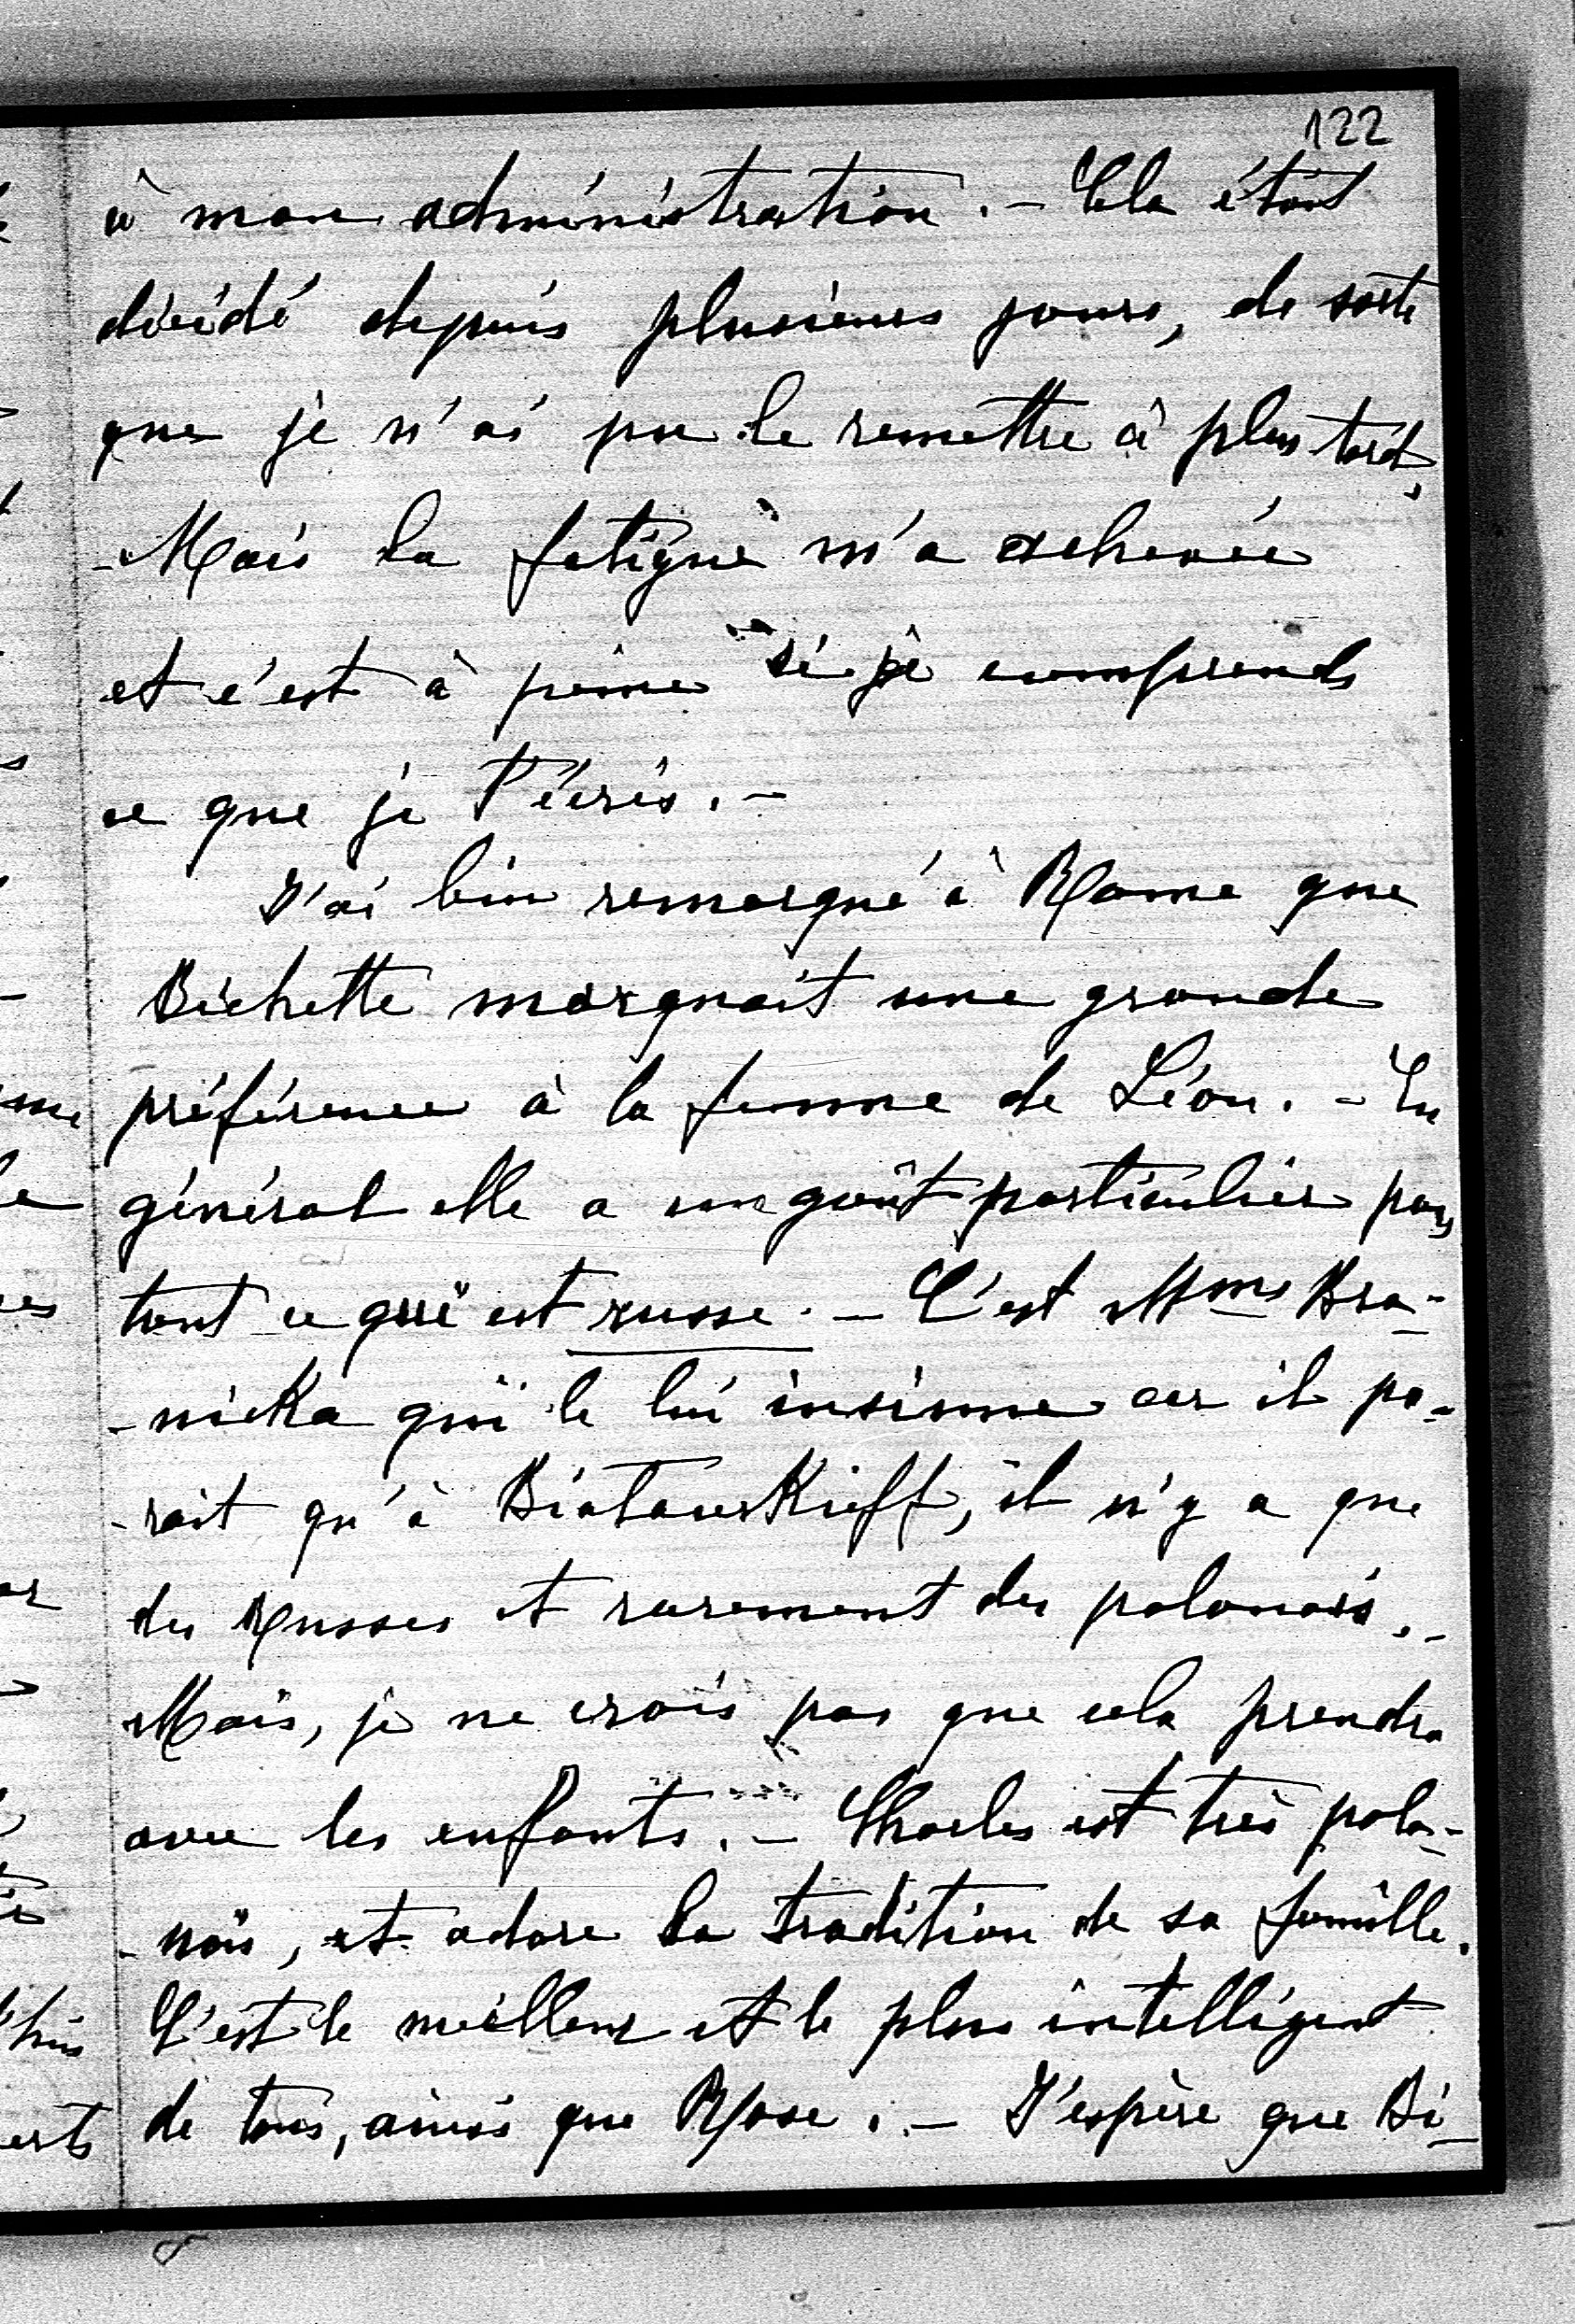 122
à mon administration. - Cela était
décidé depuis plusieurs jours, de sorte
que je n'ai pu le remettre à plus tard.
- Mais la fatigue m'a achevée
et c'est à peine si je comprends
ce que je t'écris. -
J'ai bien remarqué à Rome que
Bichette marquait une grande
préférence à la femme de Léon. - En
général elle a un goût particulier pour
tout ce qui est russe. - C'est Mme Bra-
-nicka qui le lui insinue car il pa-
-rait qu'à Biatacerkieff, il n'y a que
des Russes et rarement des polonais. -
Mais, je ne crois pas que cela prendra
avec les enfants. - Charles est très polo-
-nais, et adore la tradition de sa famille.
C'est le meilleur et le plus intelligent
de tous, ainsi que Rose. - J'espère que Bi-